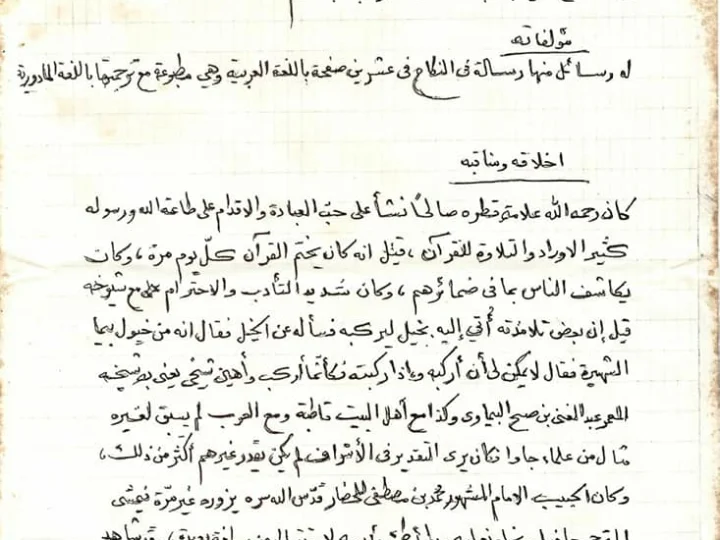 مؤلفاته
له رسائل منها رسالة فى النكاح فى عشرين صفحة باللغة العربية وهي مطبوعة مع ترجمتها باللغة المادورية
اخلاقه ومناقبه
كان رحمه الله علامة قطره صالحًا نشأ على حبّ العبادة والاقدام على طاعة الله ورسوله
كثير الاوراد والتلاوة للقرآن، قيل انه كان يختم القرآن كلّ يوم مرة، وكان
يكاشف الناس بما فى ضمائرهم، وكان شديد التأدب والاحترام على مع شيوخه
قيل إن بعض تلامذته أُتي إليه بخيل ليركبه فسأله عن الخيل فقال انه من خيول بيما
الشهيرة فقال لا يمكن لى أن أركبه وإذا ركبته فكأنّما أركب وأهين شيخى يعنى به شيخه
المعمر عبد الغنى بن صبح البيماوى وكذا مع أهل البيت قاطبة ومع العرب لم يسبق لغيره
مثال من علماء جاوا فكان يرى التقدير فى الأشراف لم يكن يقدر غيرهم أكثر من ذلك،
وكان الحبيب الامام المشهور محمد بن مصطفى المحضار قدّس الله سره يزوره غير مرّة فيمشى